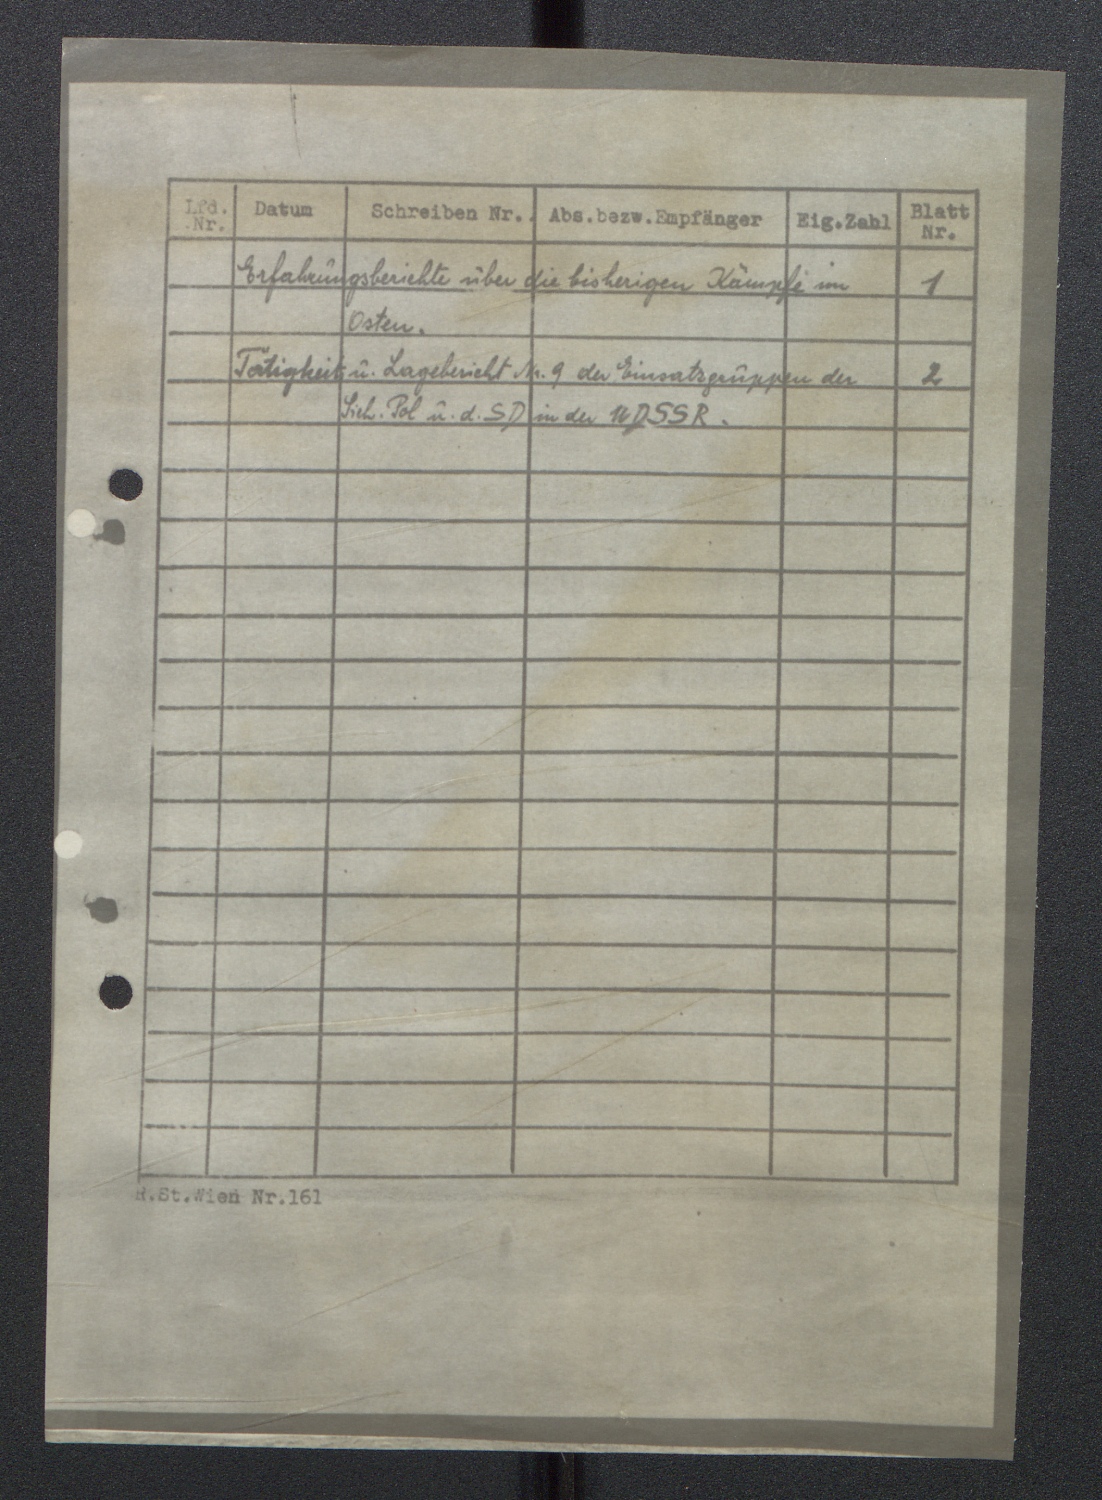 Lfd. Nr. Datum Schreiben Nr. Abs.bezw.Empfänger Eig.Zahl Blatt Nr.
Erfahrungsberichte über die bisherigen Kämpfe im 1
Osten.
Tätigkeit u. Lagebericht Nr. 9 der Einsatzgruppen der 2
Sich. Pol u. d. SD in der UDSSR.
R.St.Wien Nr.161